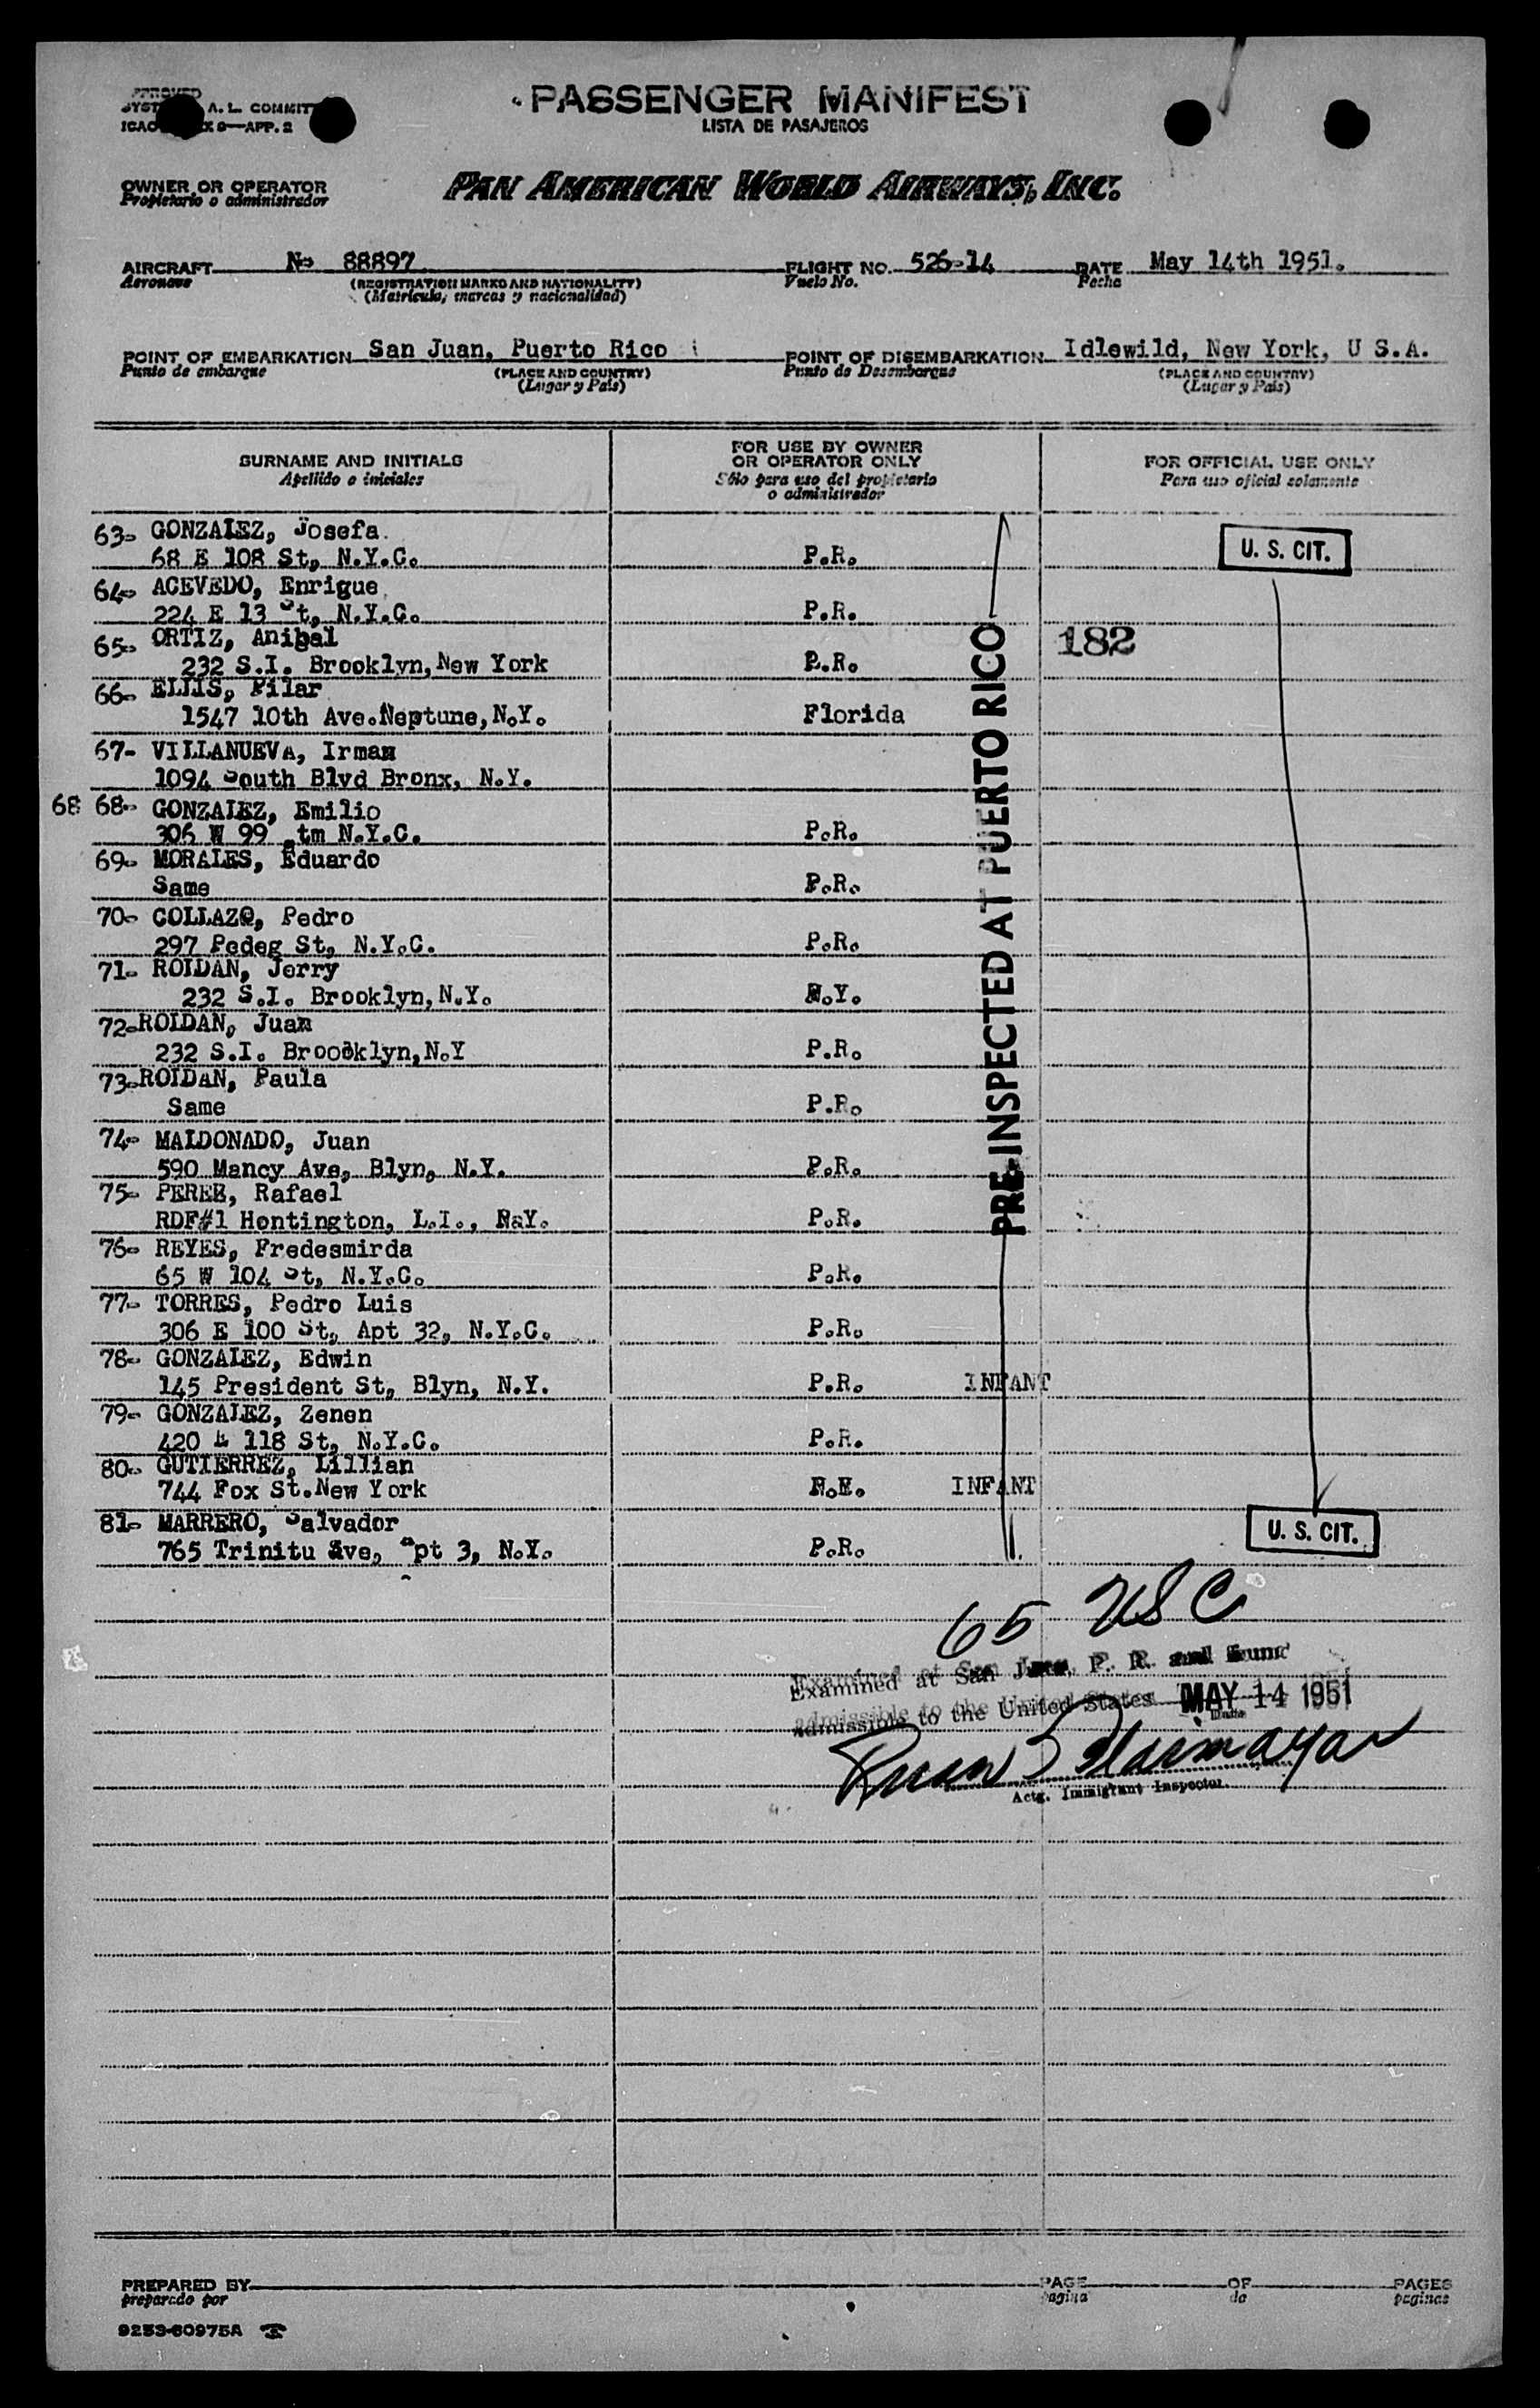 PASSENGER MANIFEST
LISTA DE PASAJEROS
A. L. COMMIT
ICAO 9—APP. 2
OWNER OR OPERATOR
Propietario o administrador
PAN AMERICAN WORLD AIRWAYS, INC.
AIRCRAFT No 88897 FLIGHT NO. 526-14 DATE May 14th 1951.
Aeronave (REGISTRATION MARKS AND NATIONALITY) Vuelo No. Fecha
(Matrícula, marcas y nacionalidad)
POINT OF EMBARKATION San Juan, Puerto Rico POINT OF DISEMBARKATION Idlewild, New York, U S.A.
Punto de embarque (PLACE AND COUNTRY) Punto de Desembarque (PLACE AND COUNTRY)
(Lugar y País) (Lugar y País)
SURNAME AND INITIALS FOR USE BY OWNER OR OPERATOR ONLY FOR OFFICIAL USE ONLY
Apellido e iniciales Sólo para uso del propietario o administrador Para uso oficial solamente
63- GONZALEZ, Josefa.
68 E 108 St, N.Y.C. P.R. U. S. CIT.
64- ACEVEDO, Enrigue
224 E 13 St, N.Y.C. P.R.
65- ORTIZ, Anibal 182
232 S.I. Brooklyn, New York P.R.
66- ELLIS, Pilar
1547 10th Ave.Neptune, N.Y. Florida
67- VILLANUEVA, Irman
1094 South Blvd Bronx, N.Y.
68 68- GONZALEZ, Emilio
306 W 99 tm N.Y.C. P.R.
69- MORALES, Eduardo
Same P.R.
70- COLLAZO, Pedro
297 Pedeg St, N.Y.C. P.R.
71- ROLDAN, Jerry
232 S.I. Brooklyn, N.Y. N.Y.
72- ROLDAN, Juan
232 S.I. Broooklyn, N.Y P.R.
73- ROLDAN, Paula
Same P.R.
74- MALDONADO, Juan
590 Mancy Ave, Blyn, N.Y. P.R.
75- PEREZ, Rafael
RDF#1 Hontington, L.I., N.Y. P.R.
76- REYES, Fredesmirda
65 W 104 St, N.Y.C. P.R.
77- TORRES, Pedro Luis
306 E 100 St, Apt 32, N.Y.C. P.R.
78- GONZALEZ, Edwin
145 President St, Blyn, N.Y. P.R. INFANT
79- GONZALEZ, Zenen
420 E 118 St, N.Y.C. P.R.
80- GUTIERREZ, Lillian
744 Fox St.New York INFANT
81- MARRERO, Salvador
765 Trinitu Ave, Apt 3, N.Y. P.R. U. S. CIT.
PRE-INSPECTED AT PUERTO RICO
65 USC
Examined at San Juan, P. R. and found
admissible to the United States MAY 14 1951
Date
Actg. Immigrant Inspector
PREPARED BY PAGE OF PAGES
preparado por pagina de paginas
9253-60975A